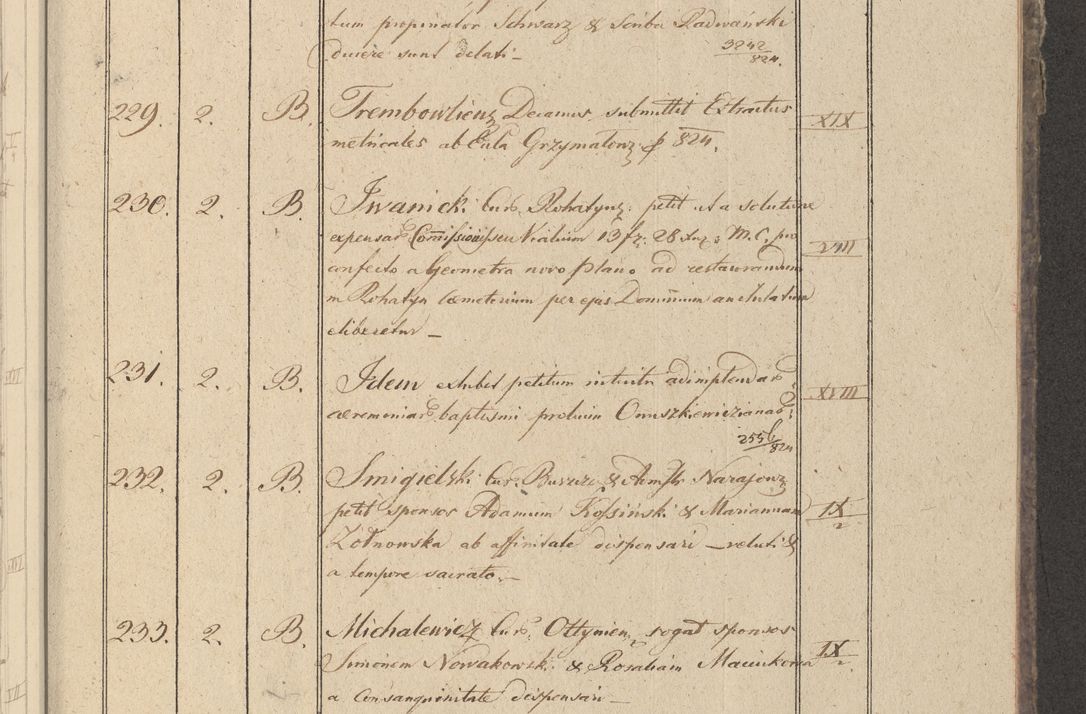 tum propinator Schwarz & Scriba Radwański
duiere sunt delati –
3242/824.
229. 2. B. Trembowliens Decanus submittit Extractus XIX
metricales ab Eccla Grzymalow: p 824.
230. 2. B. Iwanicki Cur. Rohatyn: petit ut a solutione
expensar Comissionis seu Vialium 13 fr. 28 M. C. pro VIII
confecto a Geometra novo plano ad restaurandum
in Rohatyn Coemeterium per ejus Dominium
eliberetur –
231. 2. B. Idem exhibet petitum intuitu adimplendar XVIII
ceremoniar baptismi prolium Onuszkiewiczianar
2556/824
232. 2. B. Smigielski Cur. & Admstr Narajow
petit sponsos Adamum Kossiński & Mariannam IX/2
Żołnowska ab affinitate dispensari – veluti &
a tempore sacrato. –
233. 2. B. Michalewicz Cur. Ottynien, rogat sponsos
Simonem Nowakowski & Rosaliam IX/2.
a Consanguinitate dispensari –